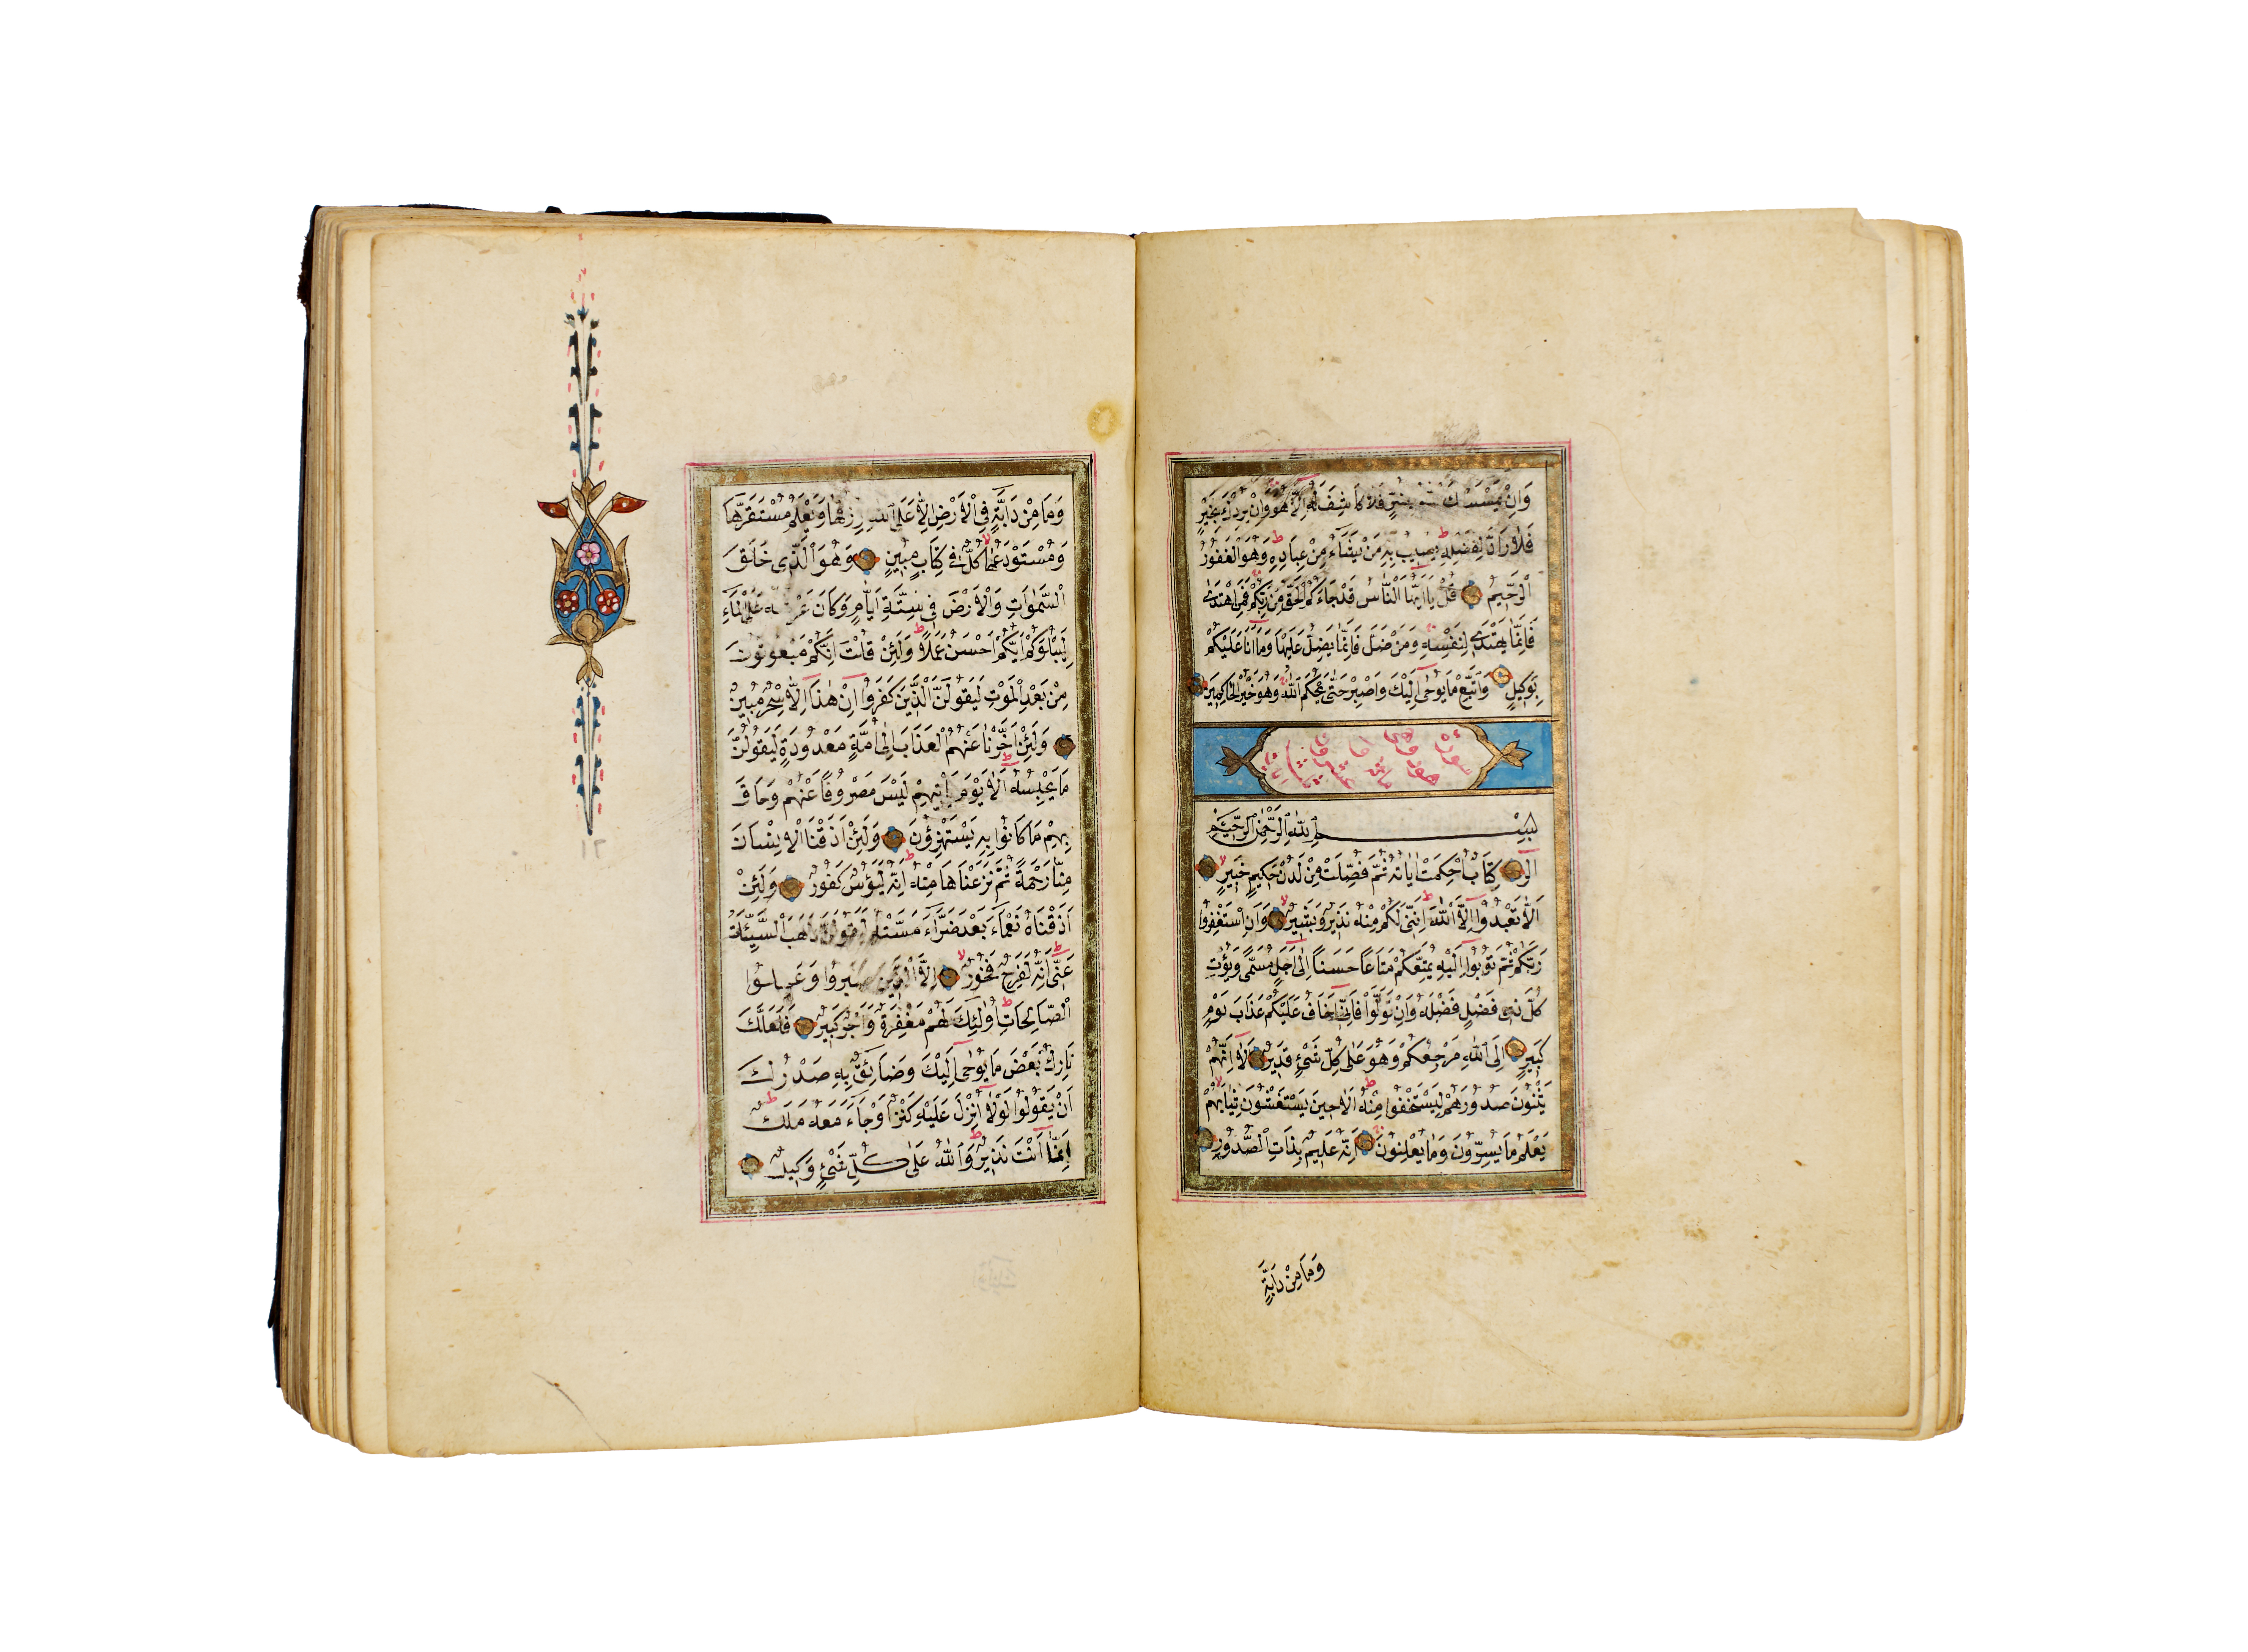 وَاِنْ يَمْسَسْكَ اللّٰهُ بِضُرٍّ فَلَا كَاشِفَ لَهُ اِلَّا هُوَ وَاِنْ يُرِدْكَ بِخَيْرٍ
فَلَا رَادَّ لِفَضْلِهِ يُصِيبُ بِهِ مَنْ يَشَاءُ مِنْ عِبَادِهِ وَهُوَ الْغَفُورُ
الرَّحِيمُ قُلْ يَا اَيُّهَا النَّاسُ قَدْ جَاءَكُمُ الْحَقُّ مِنْ رَبِّكُمْ فَمَنِ اهْتَدٰى
فَاِنَّمَا يَهْتَدِى لِنَفْسِهِ وَمَنْ ضَلَّ فَاِنَّمَا يَضِلُّ عَلَيْهَا وَمَا اَنَا عَلَيْكُمْ
بِوَكِيلٍ وَاتَّبِعْ مَا يُوحٰى اِلَيْكَ وَاصْبِرْ حَتّٰى يَحْكُمَ اللّٰهُ وَهُوَ خَيْرُ الْحَاكِمِينَ
سورة هود وهى مائة
بِسْمِ اللّٰهِ الرَّحْمٰنِ الرَّحِيمِ
الٓرٰ كِتَابٌ اُحْكِمَتْ اٰيَاتُهُ ثُمَّ فُصِّلَتْ مِنْ لَدُنْ حَكِيمٍ خَبِيرٍ
اَلَّا تَعْبُدُوا اِلَّا اللّٰهَ اِنَّنِى لَكُمْ مِنْهُ نَذِيرٌ وَبَشِيرٌ وَاَنِ اسْتَغْفِرُوا
رَبَّكُمْ ثُمَّ تُوبُوا اِلَيْهِ يُمَتِّعْكُمْ مَتَاعًا حَسَنًا اِلٰى اَجَلٍ مُسَمًّى وَيُؤْتِ
كُلَّ ذِى فَضْلٍ فَضْلَهُ وَاِنْ تَوَلَّوْا فَاِنِّى اَخَافُ عَلَيْكُمْ عَذَابَ يَوْمٍ
كَبِيرٍ اِلَى اللّٰهِ مَرْجِعُكُمْ وَهُوَ عَلٰى كُلِّ شَىْءٍ قَدِيرٌ اَلَا اِنَّهُمْ
يَثْنُونَ صُدُورَهُمْ لِيَسْتَخْفُوا مِنْهُ اَلَا حِينَ يَسْتَغْشُونَ ثِيَابَهُمْ
يَعْلَمُ مَا يُسِرُّونَ وَمَا يُعْلِنُونَ اِنَّهُ عَلِيمٌ بِذَاتِ الصُّدُورِ
وَمَا مِنْ دَابَّةٍ
وَمَا مِنْ دَابَّةٍ فِى الْاَرْضِ اِلَّا عَلَى اللّٰهِ رِزْقُهَا وَيَعْلَمُ مُسْتَقَرَّهَا
وَمُسْتَوْدَعَهَا كُلٌّ فِى كِتَابٍ مُبِينٍ وَهُوَ الَّذِى خَلَقَ
السَّمٰوَاتِ وَالْاَرْضَ فِى سِتَّةِ اَيَّامٍ وَكَانَ عَرْشُهُ عَلَى الْمَاءِ
لِيَبْلُوَكُمْ اَيُّكُمْ اَحْسَنُ عَمَلًا وَلَئِنْ قُلْتَ اِنَّكُمْ مَبْعُوثُونَ
مِنْ بَعْدِ الْمَوْتِ لَيَقُولَنَّ الَّذِينَ كَفَرُوا اِنْ هٰذَا اِلَّا سِحْرٌ مُبِينٌ
وَلَئِنْ اَخَّرْنَا عَنْهُمُ الْعَذَابَ اِلٰى اُمَّةٍ مَعْدُودَةٍ لَيَقُولُنَّ
مَا يَحْبِسُهُ اَلَا يَوْمَ يَاْتِيهِمْ لَيْسَ مَصْرُوفًا عَنْهُمْ وَحَاقَ
بِهِمْ مَا كَانُوا بِهِ يَسْتَهْزِؤُنَ وَلَئِنْ اَذَقْنَا الْاِنْسَانَ
مِنَّا رَحْمَةً ثُمَّ نَزَعْنَاهَا مِنْهُ اِنَّهُ لَيَؤُسٌ كَفُورٌ وَلَئِنْ
اَذَقْنَاهُ نَعْمَاءَ بَعْدَ ضَرَّاءَ مَسَّتْهُ لَيَقُولَنَّ ذَهَبَ السَّيِّئَاتُ
عَنِّى اِنَّهُ لَفَرِحٌ فَخُورٌ اِلَّا الَّذِينَ صَبَرُوا وَعَمِلُوا
الصَّالِحَاتِ اُولٰئِكَ لَهُمْ مَغْفِرَةٌ وَاَجْرٌ كَبِيرٌ فَلَعَلَّكَ
تَارِكٌ بَعْضَ مَا يُوحٰى اِلَيْكَ وَضَائِقٌ بِهِ صَدْرُكَ
اَنْ يَقُولُوا لَوْلَا اُنْزِلَ عَلَيْهِ كَنْزٌ اَوْ جَاءَ مَعَهُ مَلَكٌ
اِنَّمَا اَنْتَ نَذِيرٌ وَاللّٰهُ عَلٰى كُلِّ شَىْءٍ وَكِيلٌ